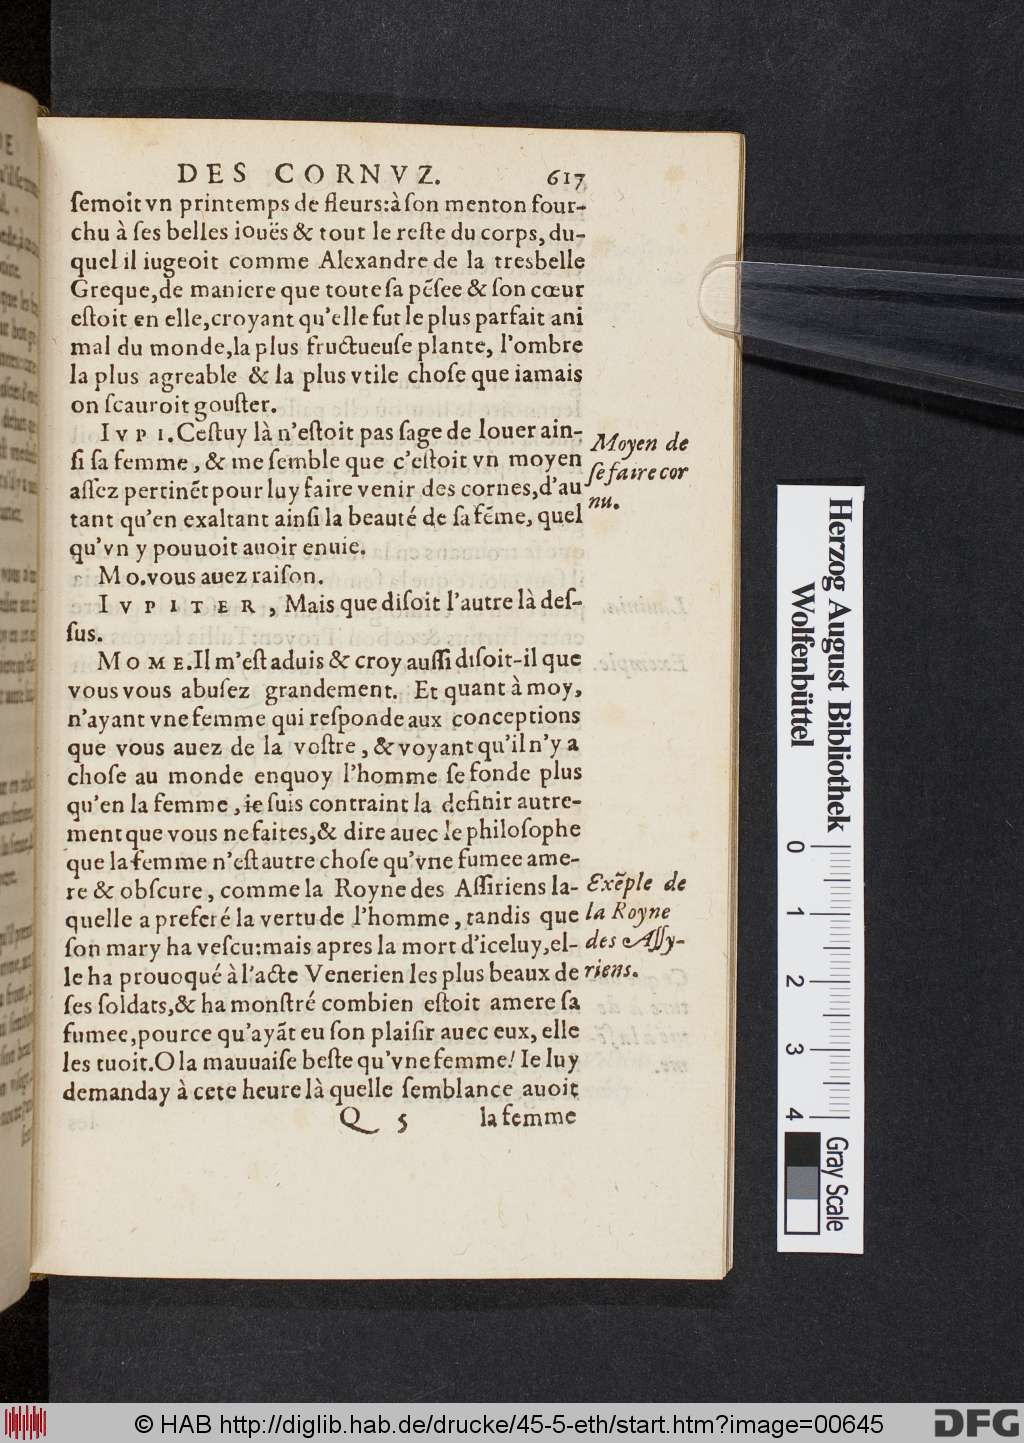 DES CORNVZ. 617
ſemoit vn printemps de fleurs:à ſon menton four-
chu à ſes belles iouës & tout le reſte du corps, du-
quel il iugeoit comme Alexandre de la tresbelle
Greque,de maniere que toute ſa pẽſee & ſon cœur
eſtoit en elle,croyant qu'elle fut le plus parfait ani
mal du monde,la plus fructueuſe plante, l'ombre
la plus agreable & la plus vtile choſe que iamais
on ſcauroit gouſter.
IVPI.Ceſtuy là n'eſtoit pas ſage de louer ain-
ſi ſa femme, & me ſemble que c'eſtoit vn moyen
aſſez pertinẽt pour luy faire venir des cornes,d'au
tant qu'en exaltant ainſi la beauté de ſa fẽme, quel
qu'vn y pouuoit auoir enuie.
Moyen de
ſe faire cor
nu.
Mo.vous auez raiſon.
IVPITER, Mais que diſoit l'autre là deſ-
ſus.
MOME.Il m'eſt aduis & croy auſſi diſoit-il que
vous vous abuſez grandement. Et quant à moy,
n'ayant vne femme qui reſponde aux conceptions
que vous auez de la voſtre, & voyant qu'il n'y a
choſe au monde enquoy l'homme ſe fonde plus
qu'en la femme, ie ſuis contraint la definir autre-
ment que vous ne faites,& dire auec le philoſophe
que la femme n'eſt autre choſe qu'vne fumee ame-
re & obſcure, comme la Royne des Aſſiriens la-
quelle a preferé la vertu de l'homme, tandis que
ſon mary ha veſcu:mais apres la mort d'iceluy,el-
le ha prouoqué à l'acte Venerien les plus beaux de
ſes ſoldats,& ha monſtré combien eſtoit amere ſa
fumee,pource qu'ayãt eu ſon plaiſir auec eux, elle
les tuoit.O la mauuaiſe beſte qu'vne femme! Ie luy
demanday à cete heure là quelle ſemblance auoit
Exẽple de
la Royne
des Aſſy-
riens.
Q 5 la femme
Herzog August Bibliothek
Wolfenbüttel
0 1 2 3 4
Gray Scale
© HAB http://diglib.hab.de/drucke/45-5-eth/start.htm?image=00645
DFG